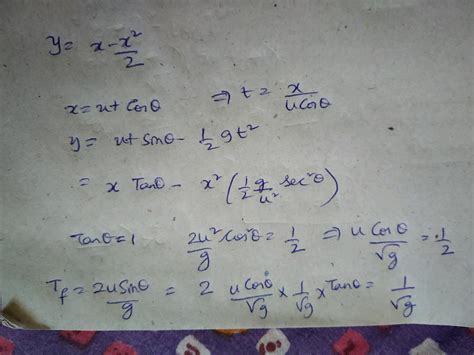 y = x - x²/2
x = ut cosθ ⇒ t = x/(u cosθ)
y = ut sinθ - 1/2 gt²
= x Tanθ - x² (1/2 g/u² sec²θ)
Tanθ = 1 2u²/g cos²θ = 1/2 ⇒ u cosθ/√g = 1/2
T_f = 2u sinθ/g = 2 u cosθ/√g × 1/√g × Tanθ = 1/√g